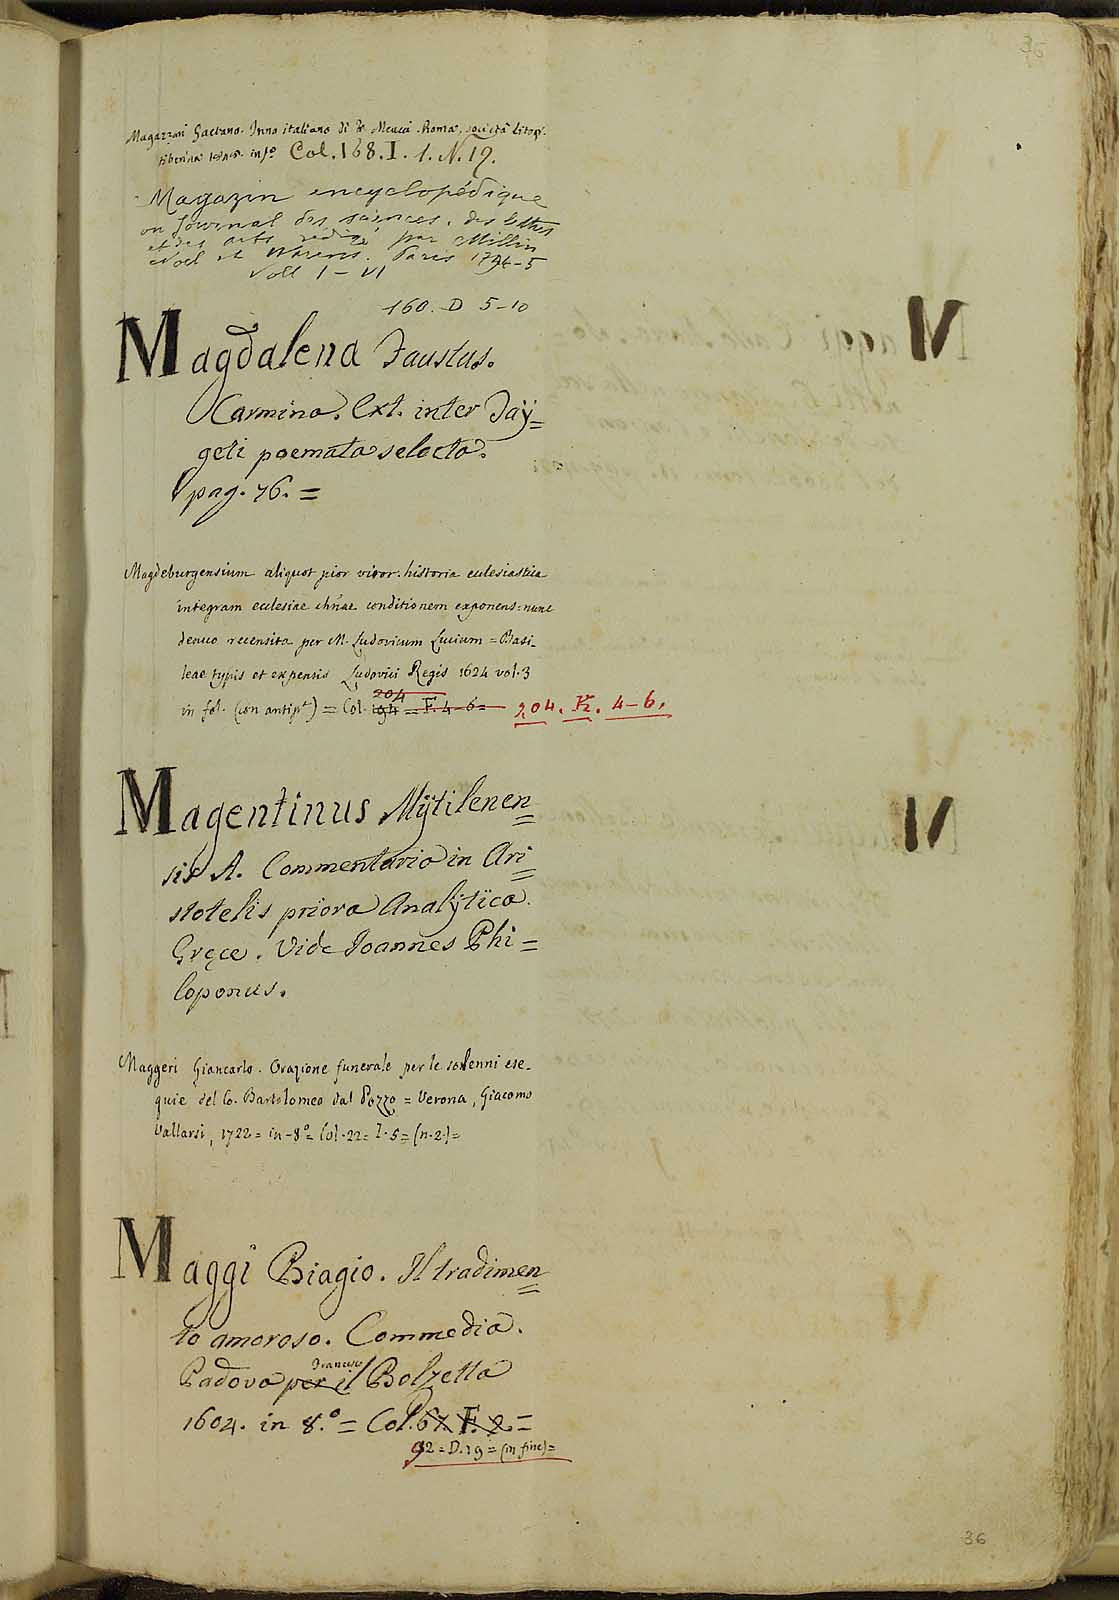 35
Magazzari Gaetano. Inno italiano di F. Meucci. Roma, società Litogr.
tiberina in fo Col. 168. I. 1. N. 19.
Magazin encyclopédique
ou Journal des sciences, des lettres
et des arts rédigé par Millin
Noel et Warens. Paris 1794-5
Voll I - VI
160. D 5-10
Magdalena Faustus.
Carmina. Ext. inter Taÿ=
geti poemata selecta.
pag. 76. =
Magdeburgensium aliquot pior viror. historia eclesiastica
integram ecclesiae chnae conditionem exponens: nunc
denuo recensita per M. Ludovicum Lucium = Basi_
leae typis et expensis Ludovici Regis 1624 vol. 3
204
in fol. (con antipt) = Col. 194 = F. 4-6= 204. F. 4-6.
Magentinus Mÿtilenen=
sis A. Commentaria in Ari=
stotelis priora Analÿtica.
Gręce. Vide Joannes Phi=
loponus.
Maggeri Giancarlo. Orazione funerale per le solenni ese_
quie del Co. Bartolomeo dal Pozzo = Verona, Giacomo
Vallarsi, 1722 = in-8o = Col. 22 = I. 5 = (n. 2.) =
Maggi Biagio. Il tradimen=
to amoroso. Commedia.
Francesco
Padova per il Bolzetta
1604. in 8.o = Col. 67. F. 2. =
92 = D. 19 = (in fine) =
36